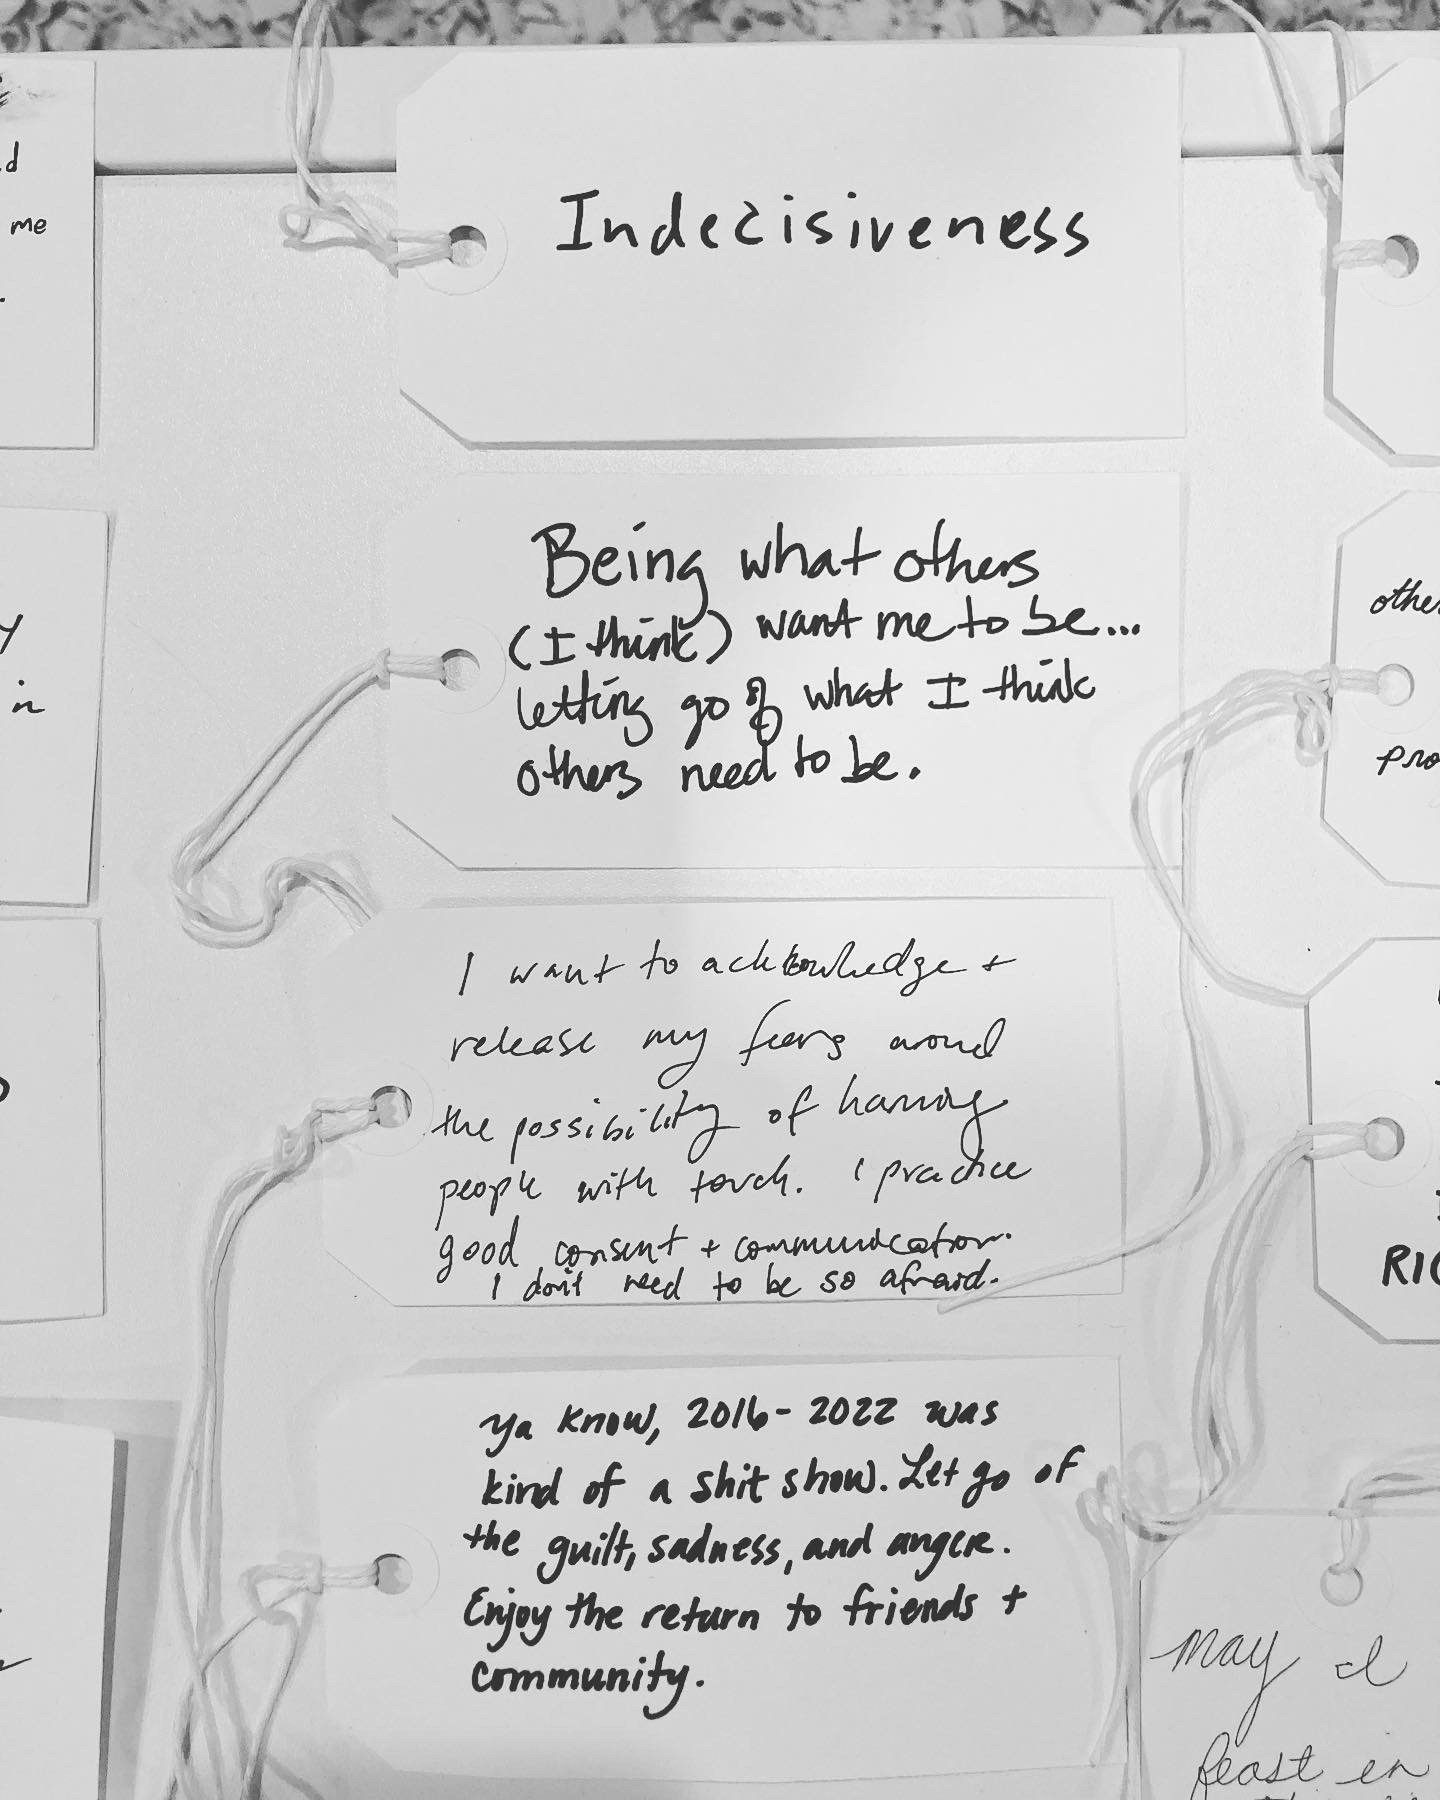 Indecisiveness
Being what others
(I think) want me to be...
letting go of what I think
others need to be.
I want to acknowledge +
release my fears around
the possibility of harming
people with touch. I practice
good consent + communication.
I don't need to be so afraid.
Ya know, 2016-2022 was
kind of a shit show. Let go of
the guilt, sadness, and anger.
Enjoy the return to friends +
community.
me
in
RIC
may I
feast in